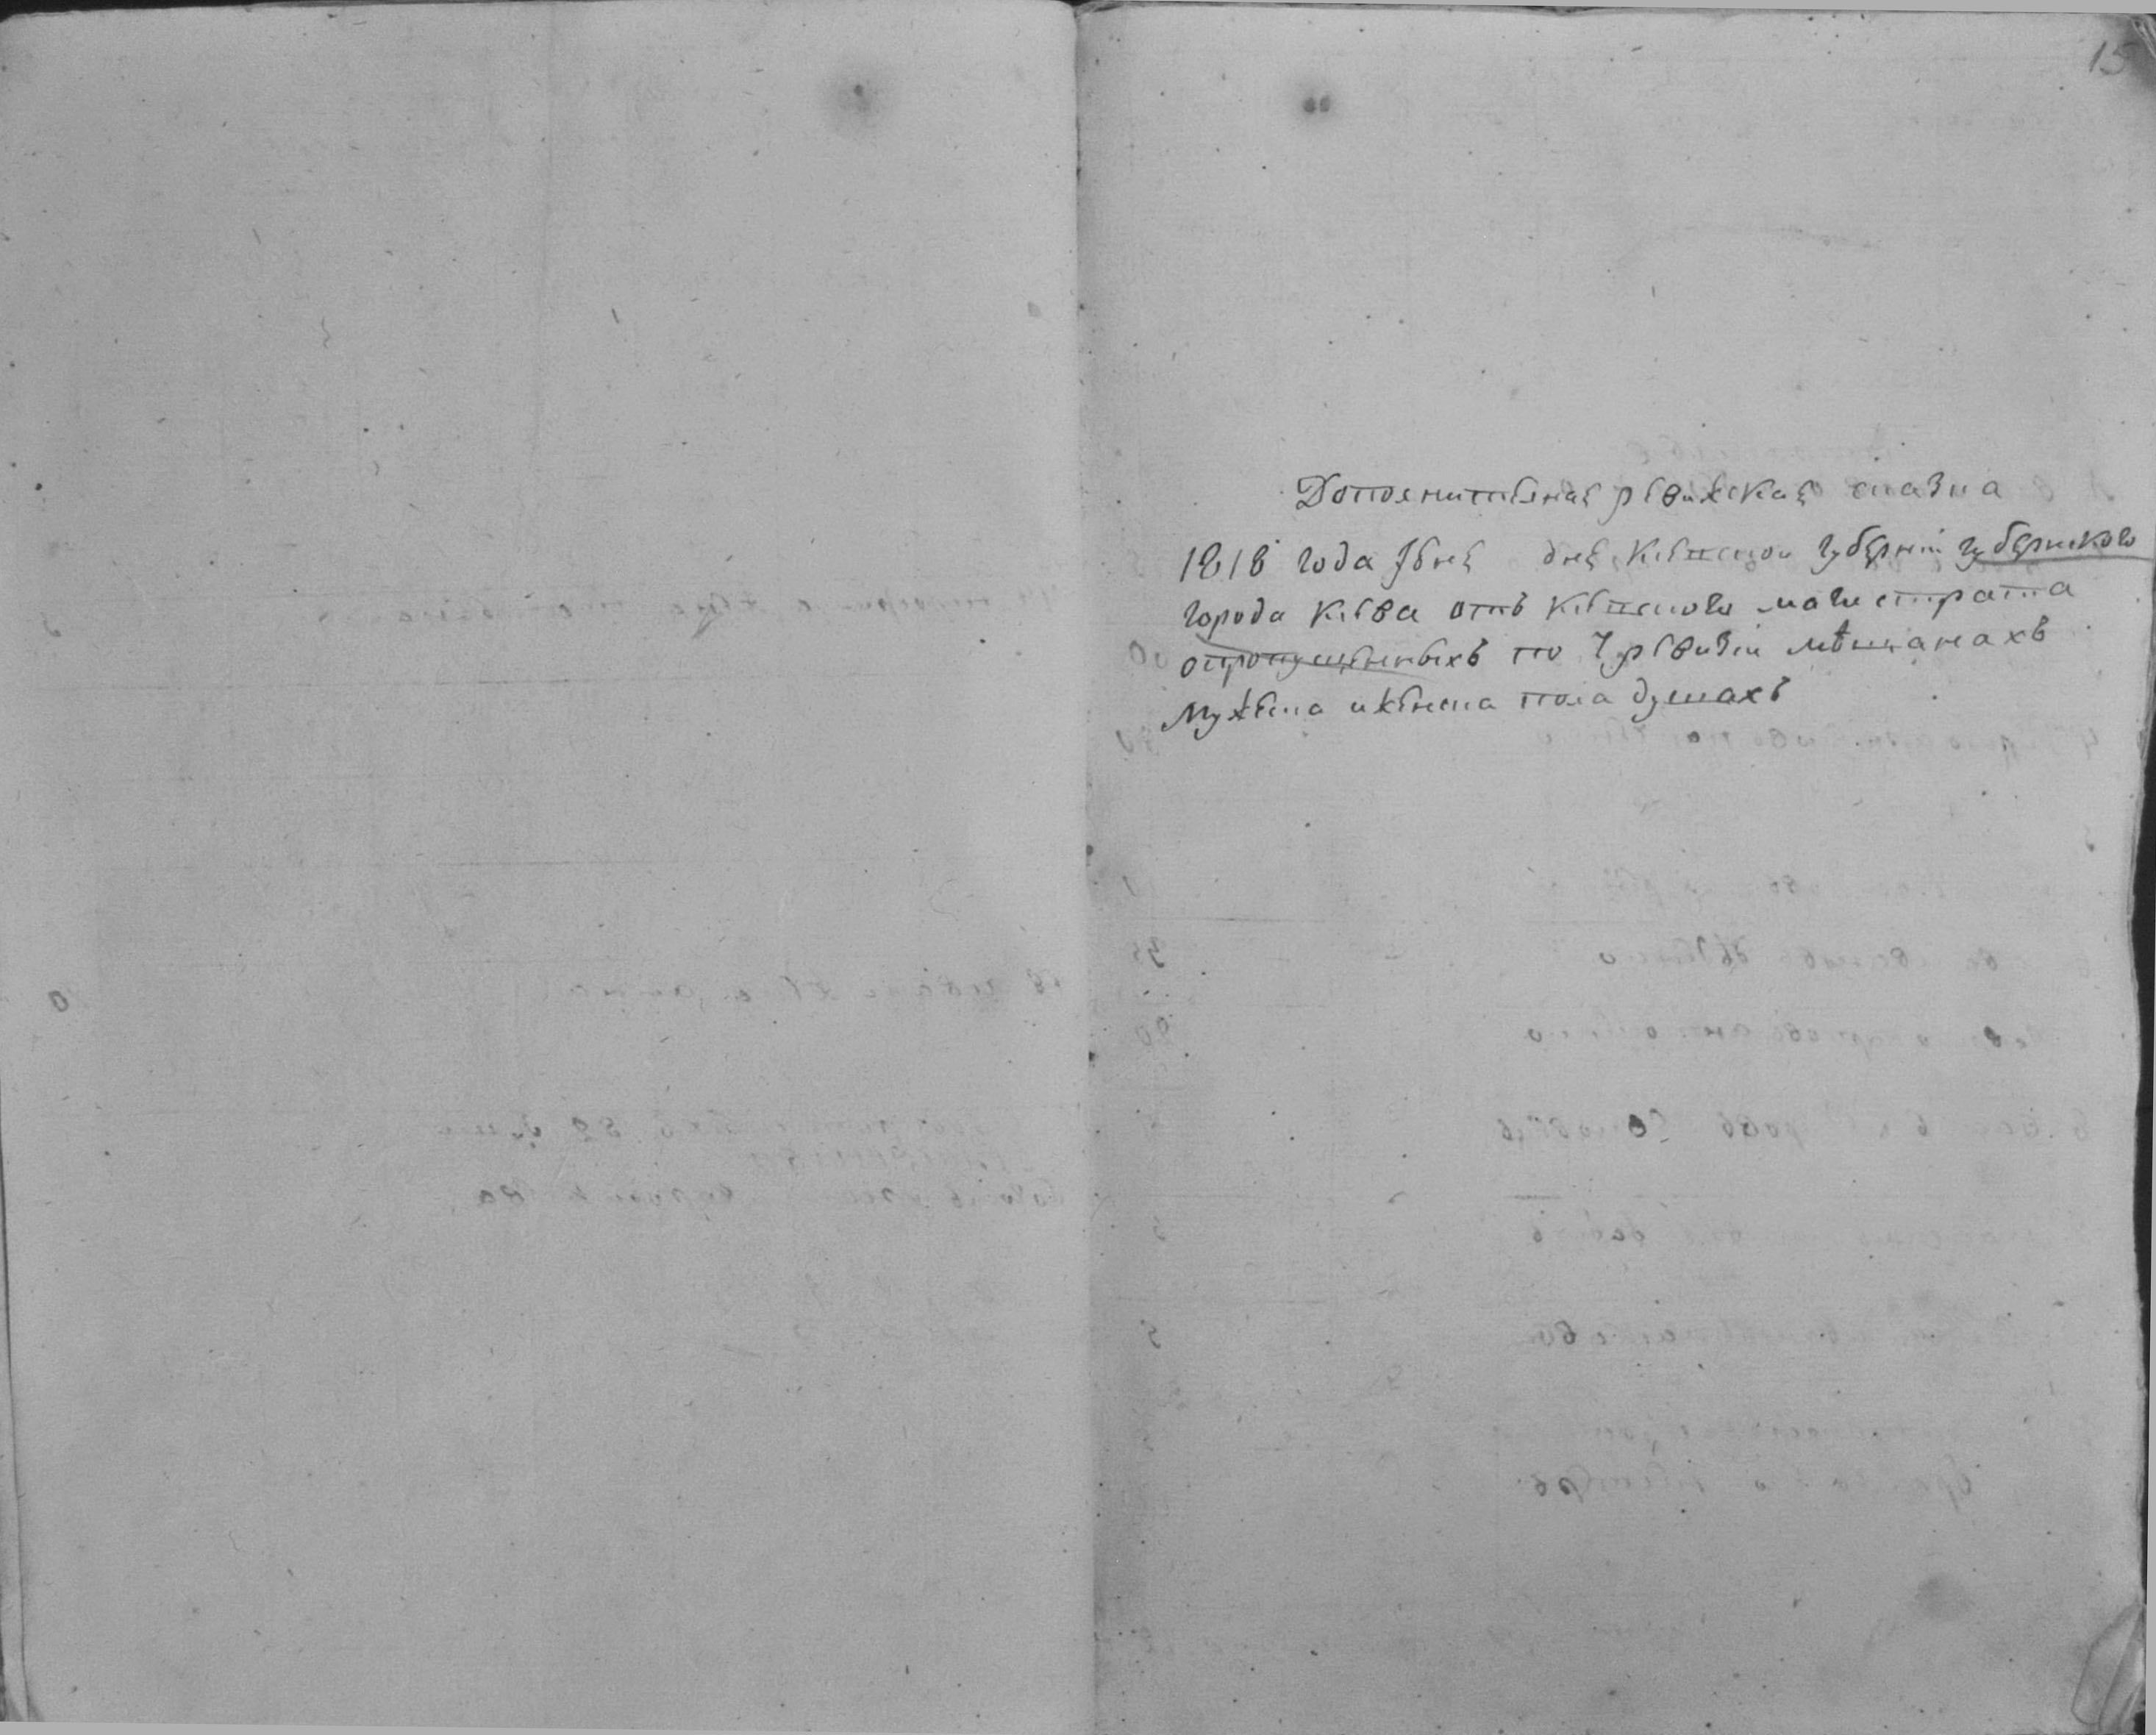 15
Дополнителная ревижская сказка
1818 года Іюня дня, Киевской губерніи губернского
города Киева отъ Киевского магистрата
опропущенныхъ по 7 ревизіи мѣщанахъ
мужеска иженска пола душахъ